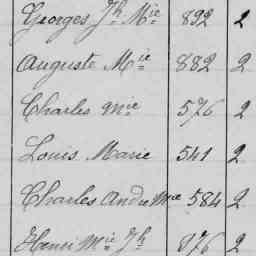 Georges Jh Mie 892 2
Auguste Mie 882 2
Charles Mie 576 2
Louis Marie 541 2
Charles André Mie 584 2
Henri Mie Jh 876 2